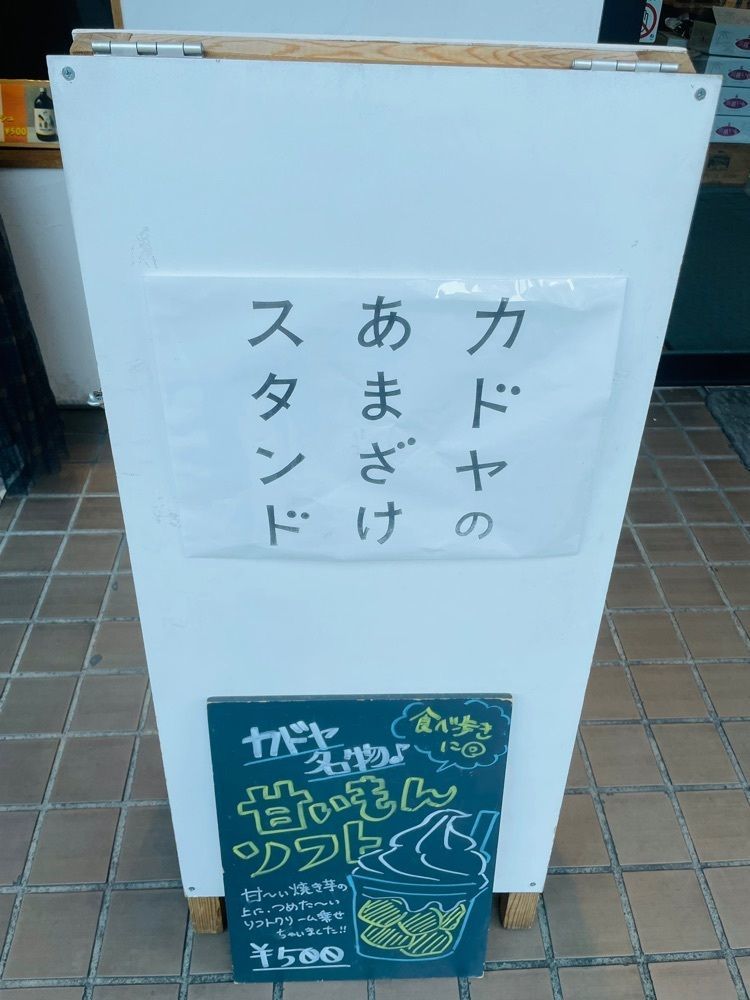 カドヤの
あまざけ
スタンド
カドヤ
名物♪
食べ歩き
に◎
甘いもん
ソフト
甘〜い焼き芋の
上に、つめた〜い
ソフトクリーム乗せ
ちゃいました!!
¥500
¥500